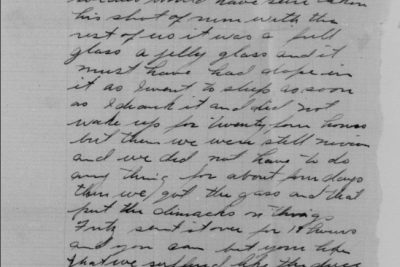 his shot of rum with the
rest of us it was a full
glass a jelly glass and it
must have had dope in
it as I went to sleep as soon
as I drank it and did not
wake up for twenty four hours
but then we were still nervous
and we did not have to do
any thing for about four days
then we got the gass and that
put the climacks on things
Fritz sent it over for 18 hours
and you can bet your life
that we suffered like the